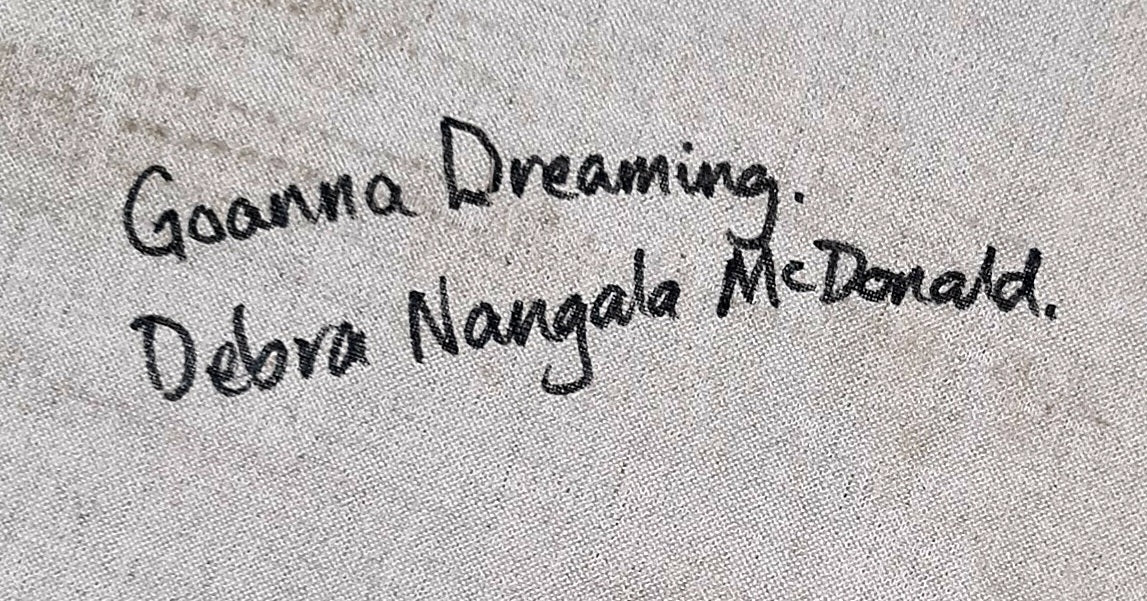 Goanna Dreaming.
Debra Nangala McDonald.